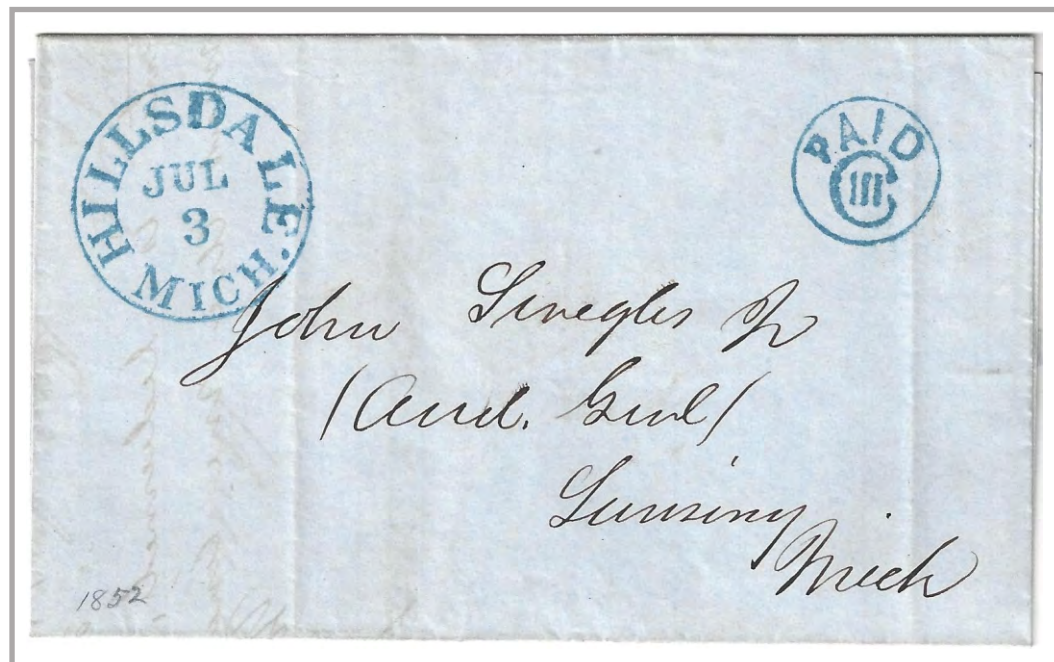 HILLSDALE. MICH.
JUL
3
PAID
III C
John Swegles Jr
/Aud. Genl/
Lansing
Mich
1852